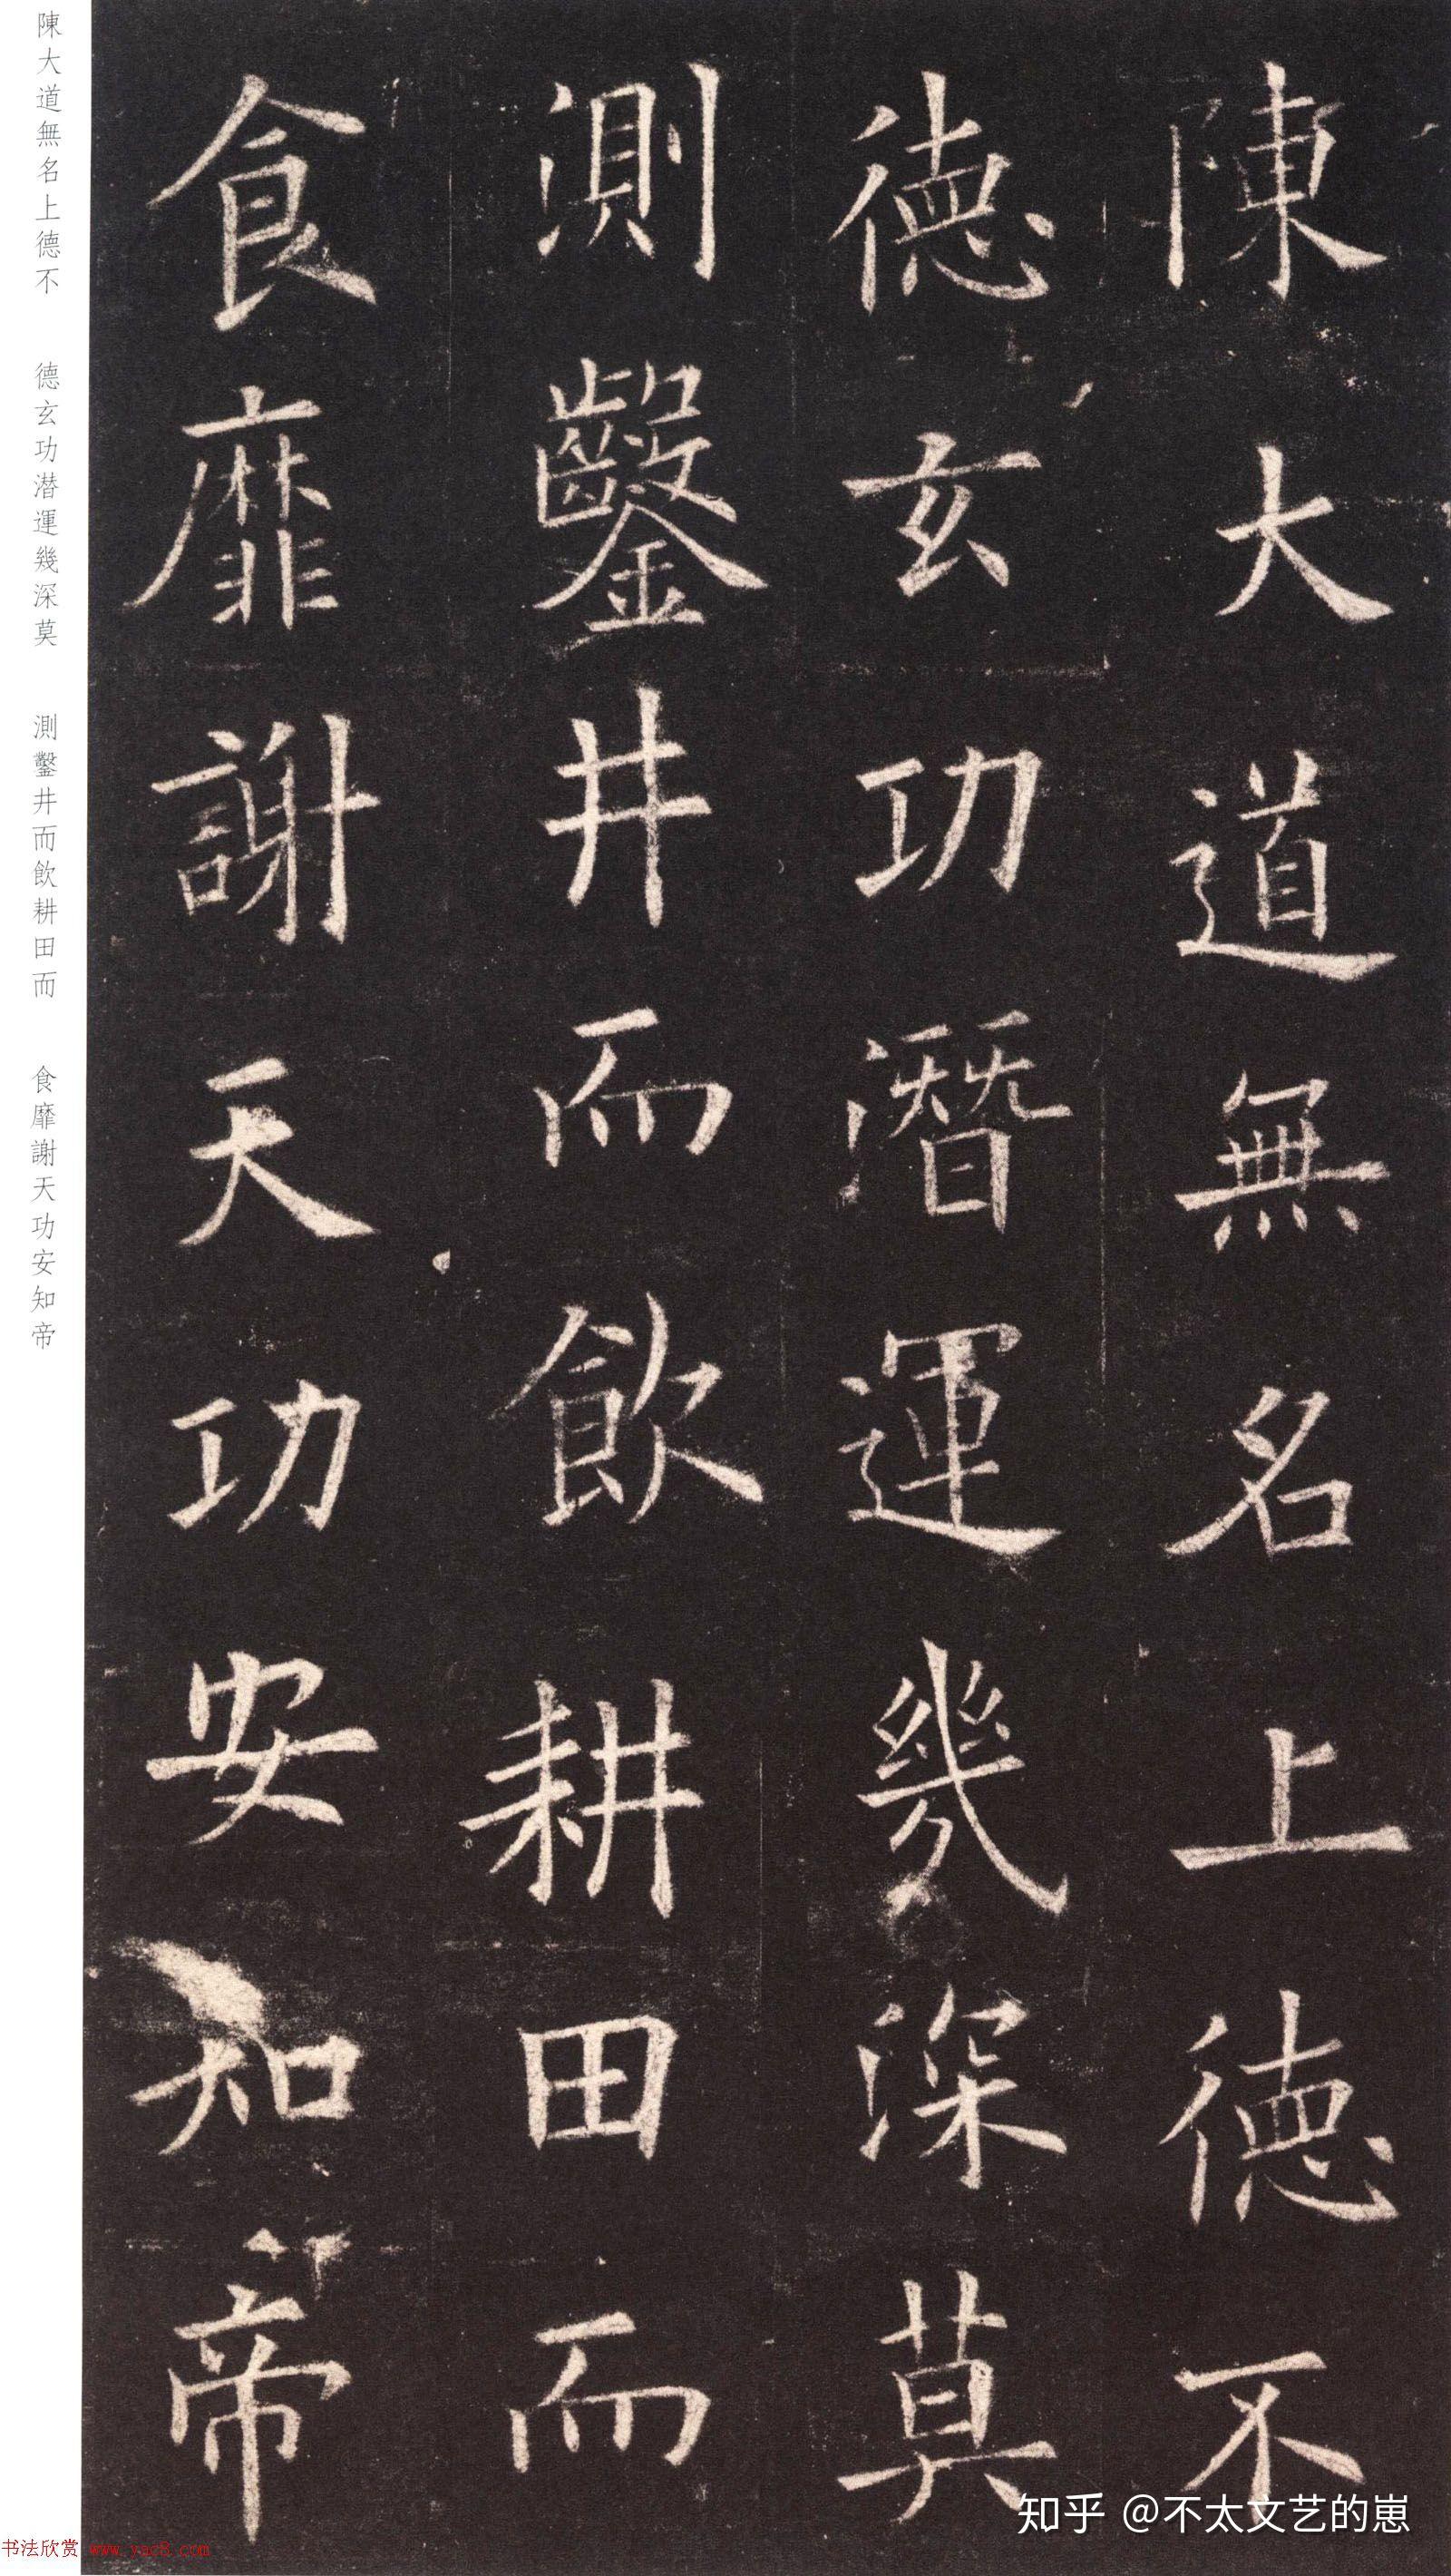 陳大道無名上德不
德玄功潛運幾深莫
測鑿井而飲耕田而
食靡謝天功安知帝
陳大道無名上德不 德玄功潜運幾深莫 測鑿井而飲耕田而 食靡謝天功安知帝
知乎 @不太文艺的崽
书法欣赏 www.yac8.com